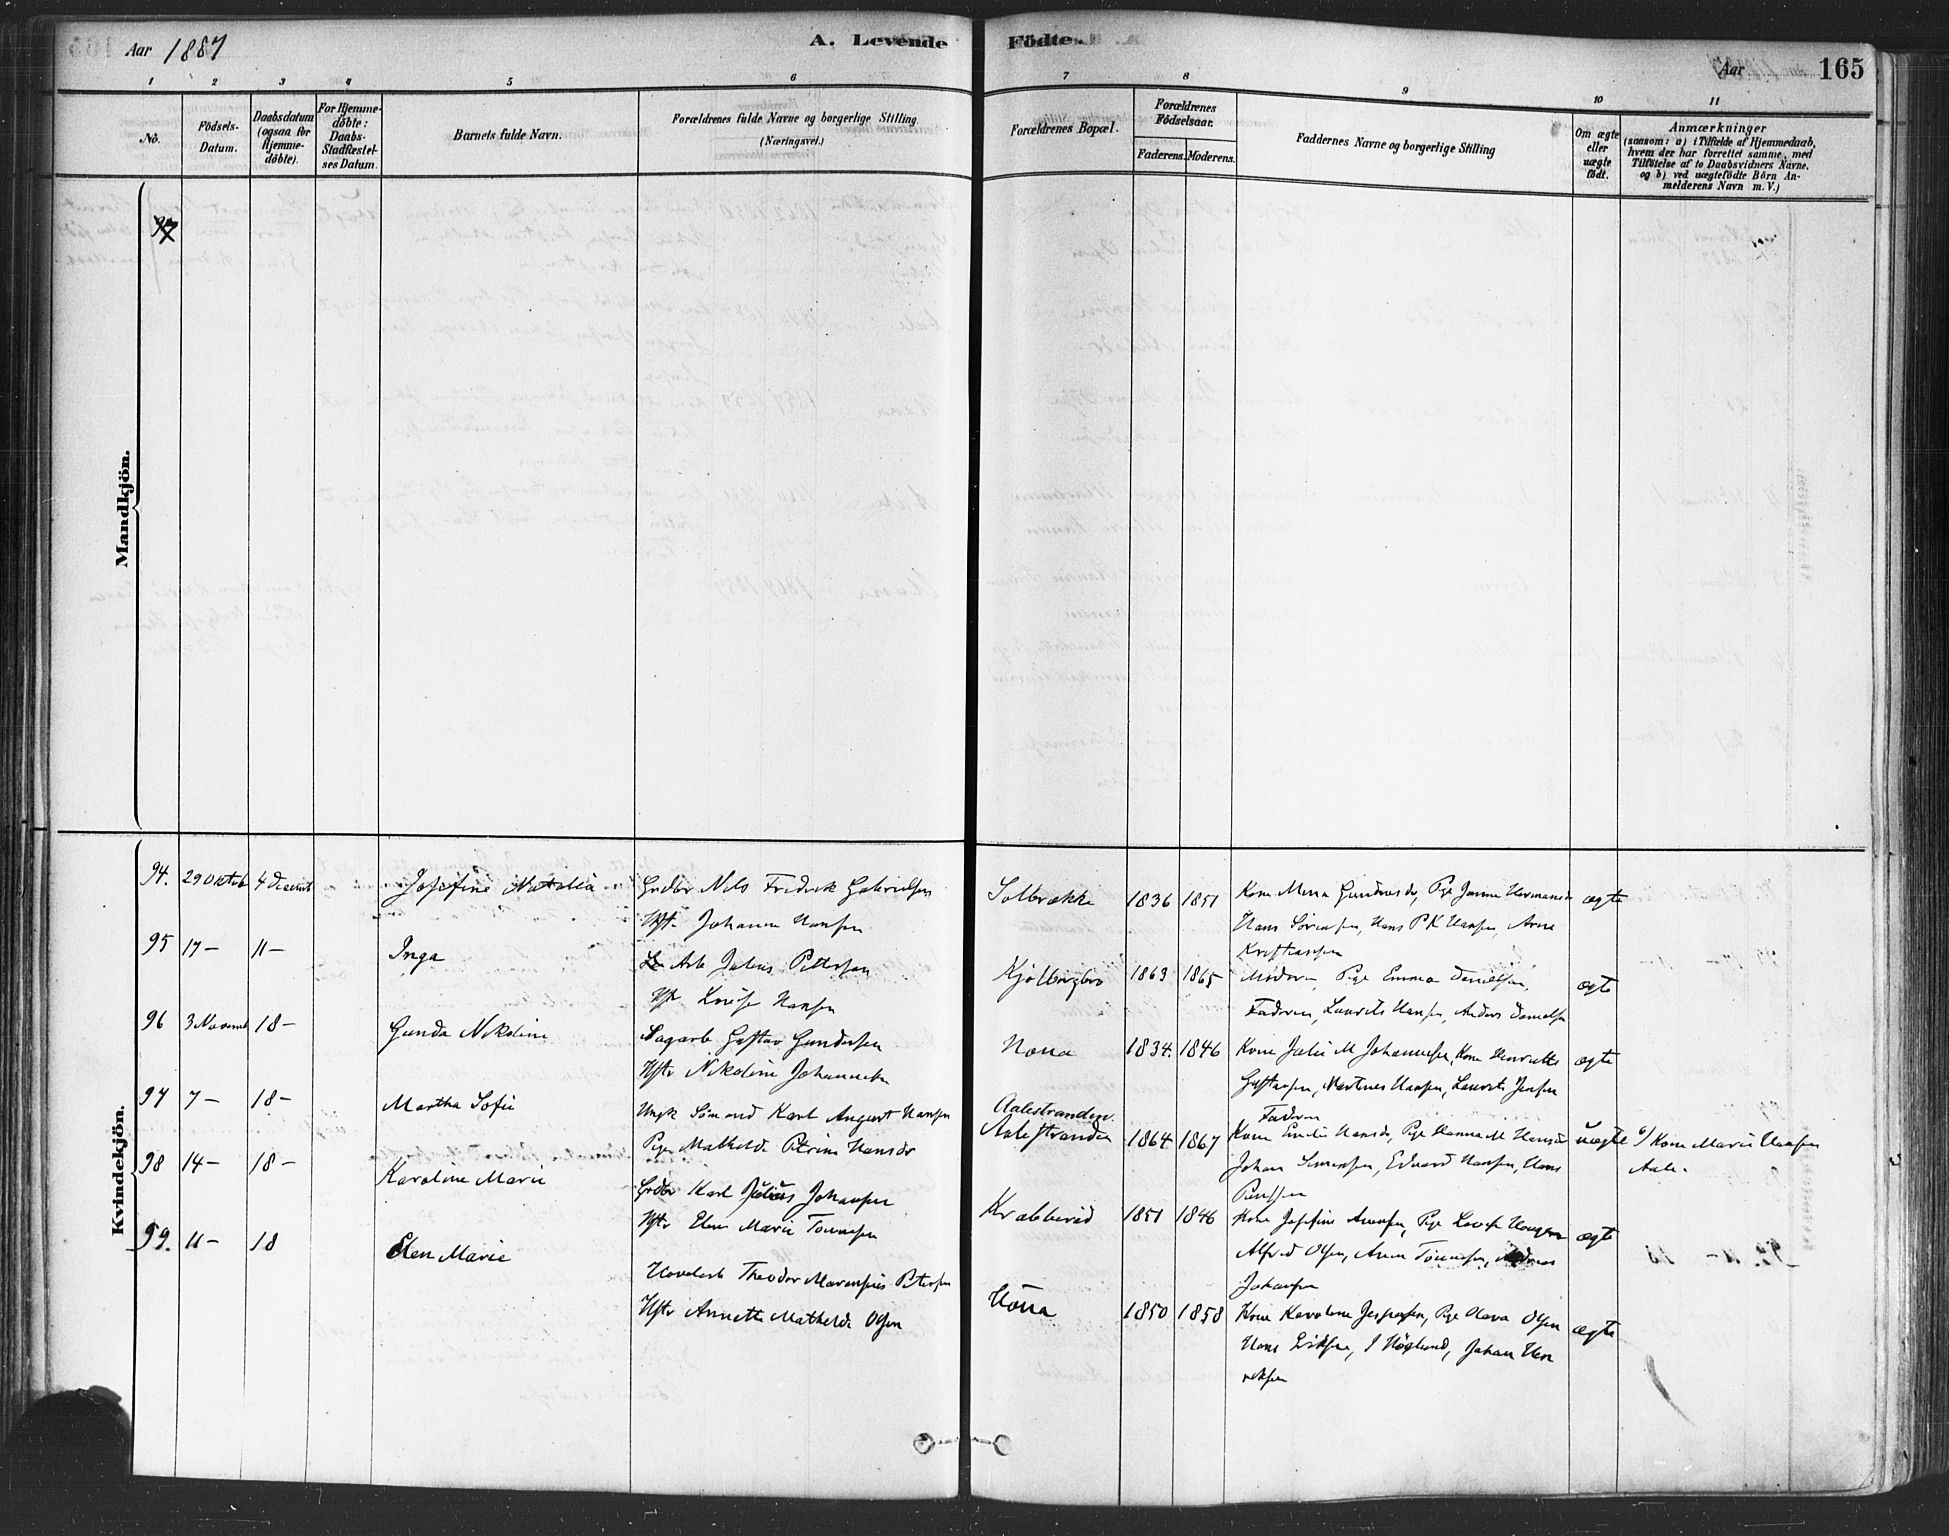 Aar 1887
A. Levende Födte.
Aar
165
1 2 3 4 5 6 7 8 9 10 11
No.
Födsels-
Datum.
Daabsdatum
(ogsaa for
Hjemme-
döbte).
For Hjemme-
döbte:
Daabs-
Stadfæstel-
ses Datum.
Barnets fulde Navn.
Forældrenes fulde Navne og borgerlige Stilling.
(Næringsvei.)
Forældrenes Bopæl.
Forældrenes
Födselsaar.
Faderens. Moderens.
Faddernes Navne og borgerlige Stilling
Om ægte
eller
uægte
födt.
Anmærkninger
(saasom: a) i Tilfælde af Hjemmedaab,
hvem der har forrettet samme, med
Tilföielse af to Daabsvidners Navne,
og b) ved uægtefödte Börn An-
melderens Navn m. V.)
Mandkjön.
Kvindekjön.
94. 29 Oktob 4 Decemb Josefine Natalia Grdbr Nils Fredrik Gabrielsen
Hst. Johanne Hansen
Solbrække 1836 1851 Kone Mina Gundersdr, Pige Janne Hermansdr ægte
Hans Sörensen, Hans P K Hansen, Arne
Kristiansen
95 17 – 11 – Inga Arb Julius Pettersen
Hst. Lovise Hansen
Kjölbergbro 1863 1865 Moderen, Pige Emma Danielsen, ægte
Faderen, Laurits Hansen, Anders Danielsen
96 3 Novemb 18 – Gunda Nikoline Sagarb Gustav Gundersen
Hstr Nikoline Johannesen
Norra 1834. 1846 Kone Julie M Johannesen, Kone Henriette ægte
Gustavsen, Martines Hansen, Laurits Jensen
Faderen
97 7 – 18 – Martha Sofie Ungk Sömand Karl August Hansen
Pige Mathilde Petrine Hansdr
Aalestranden
Aalestranden 1864 1867 Kone Emilie Hansdr, Pige Hanna M Hansdr uægte b/ Kone Marie Hansen
Johan Simensen, Edvard Hansen, Hans Aale.
98 14 – 18 – Karoline Marie Grdbr Karl Julius Johansen
Hstr Elen Marie Tönnesen
Krabberöd 1851 1846 Kone Josefine Arnesen, Pige Lovise Haugen ægte
Alfred Olsen, Anon Tönnesen, Andreas
Johansen
59. 11 – 18 Elen Marie Hovelarb Theodor Marensius Petersen
Hstr Annette Mathilde Olsen
Norra 1850 1858 Kone Karoline Jespersen, Pige Olava Olsen ægte
Hans Eriksen, J Höglund, Johan Hen
riksen